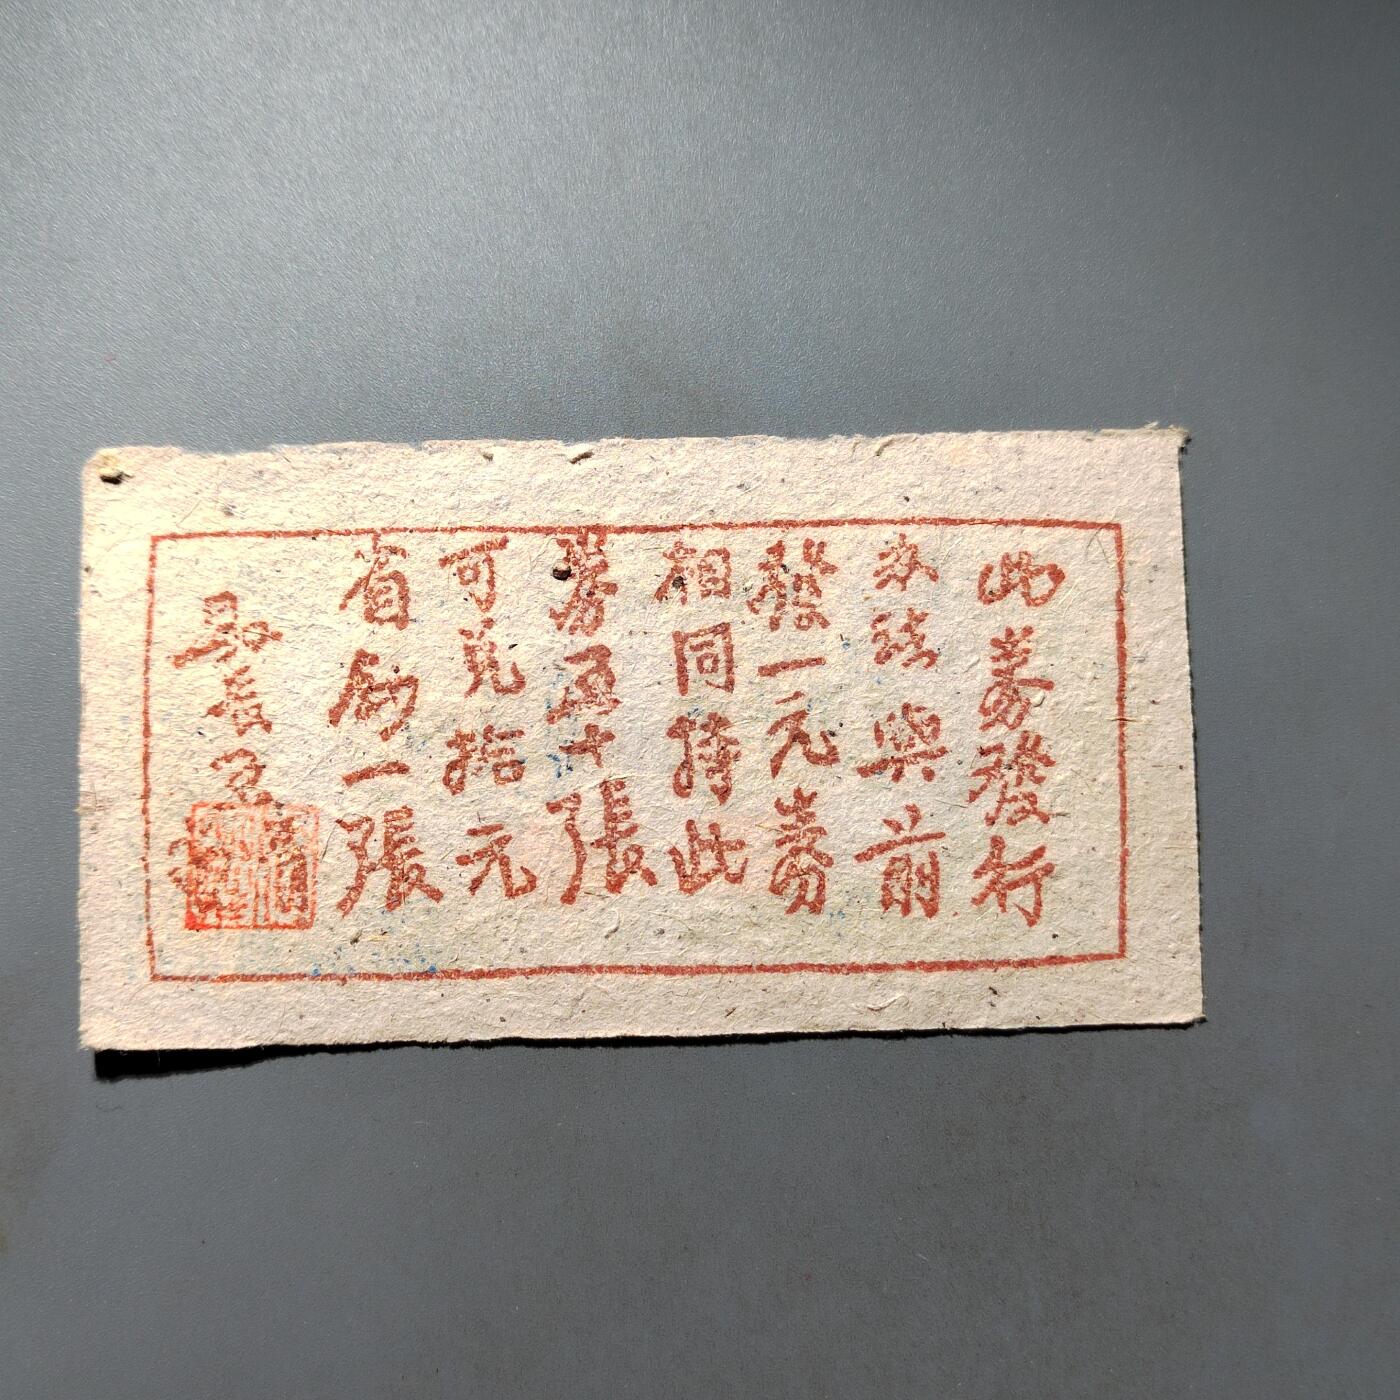 此券發行
办法與前
發一元券
相同持此
券五十張
可兌拾元
省鈔一張
縣長